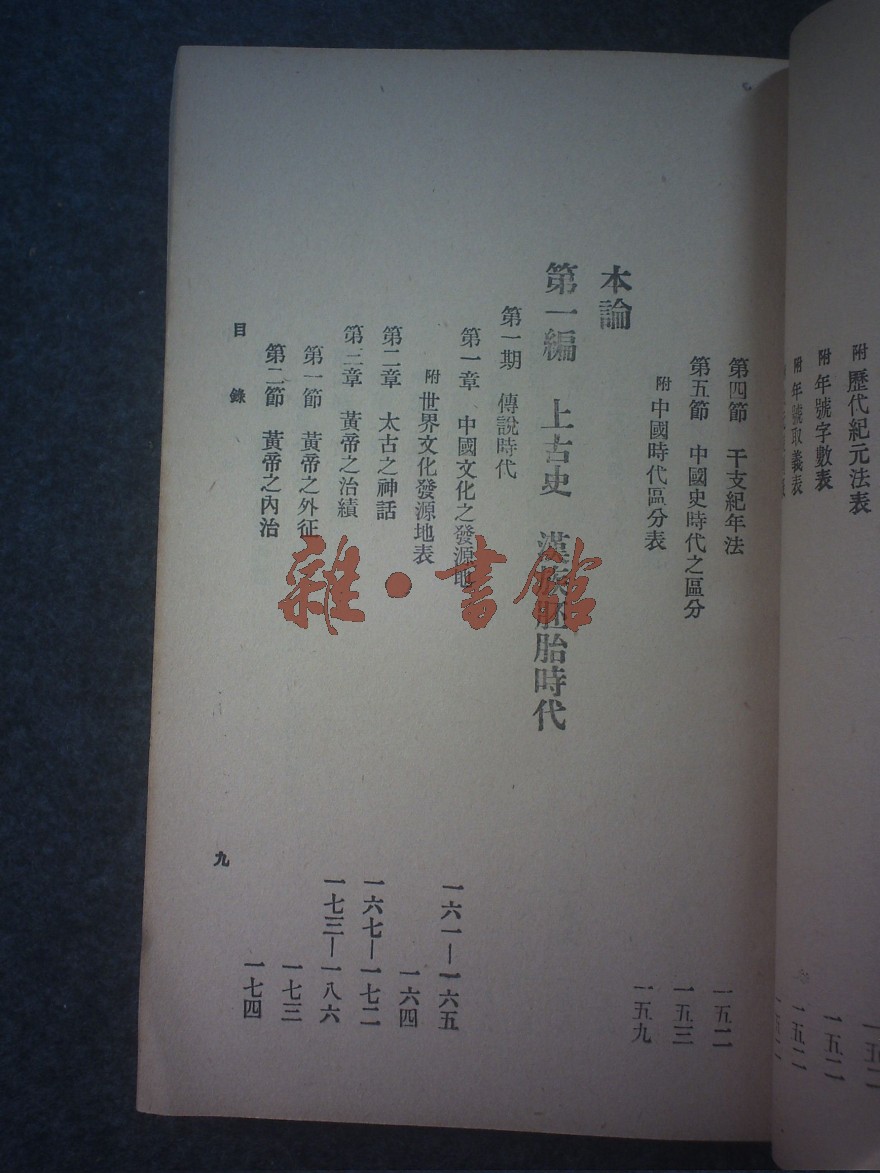 附 歷代紀元法表 一五二
附 年號字數表 一五二
附 年號取義表 一五二
第四節 干支紀年法 一五二
第五節 中國史時代之區分 一五三
附 中國時代區分表 一五九
本論
第一編 上古史 漢族胚胎時代
第一期 傳說時代
第一章 中國文化之發源地 一六一—一六五
附 世界文化發源地表 一六四
第二章 太古之神話 一六七—一七二
第三章 黃帝之治績 一七三—一八六
第一節 黃帝之外征 一七三
第二節 黃帝之內治 一七四
目錄 九
雜·書館